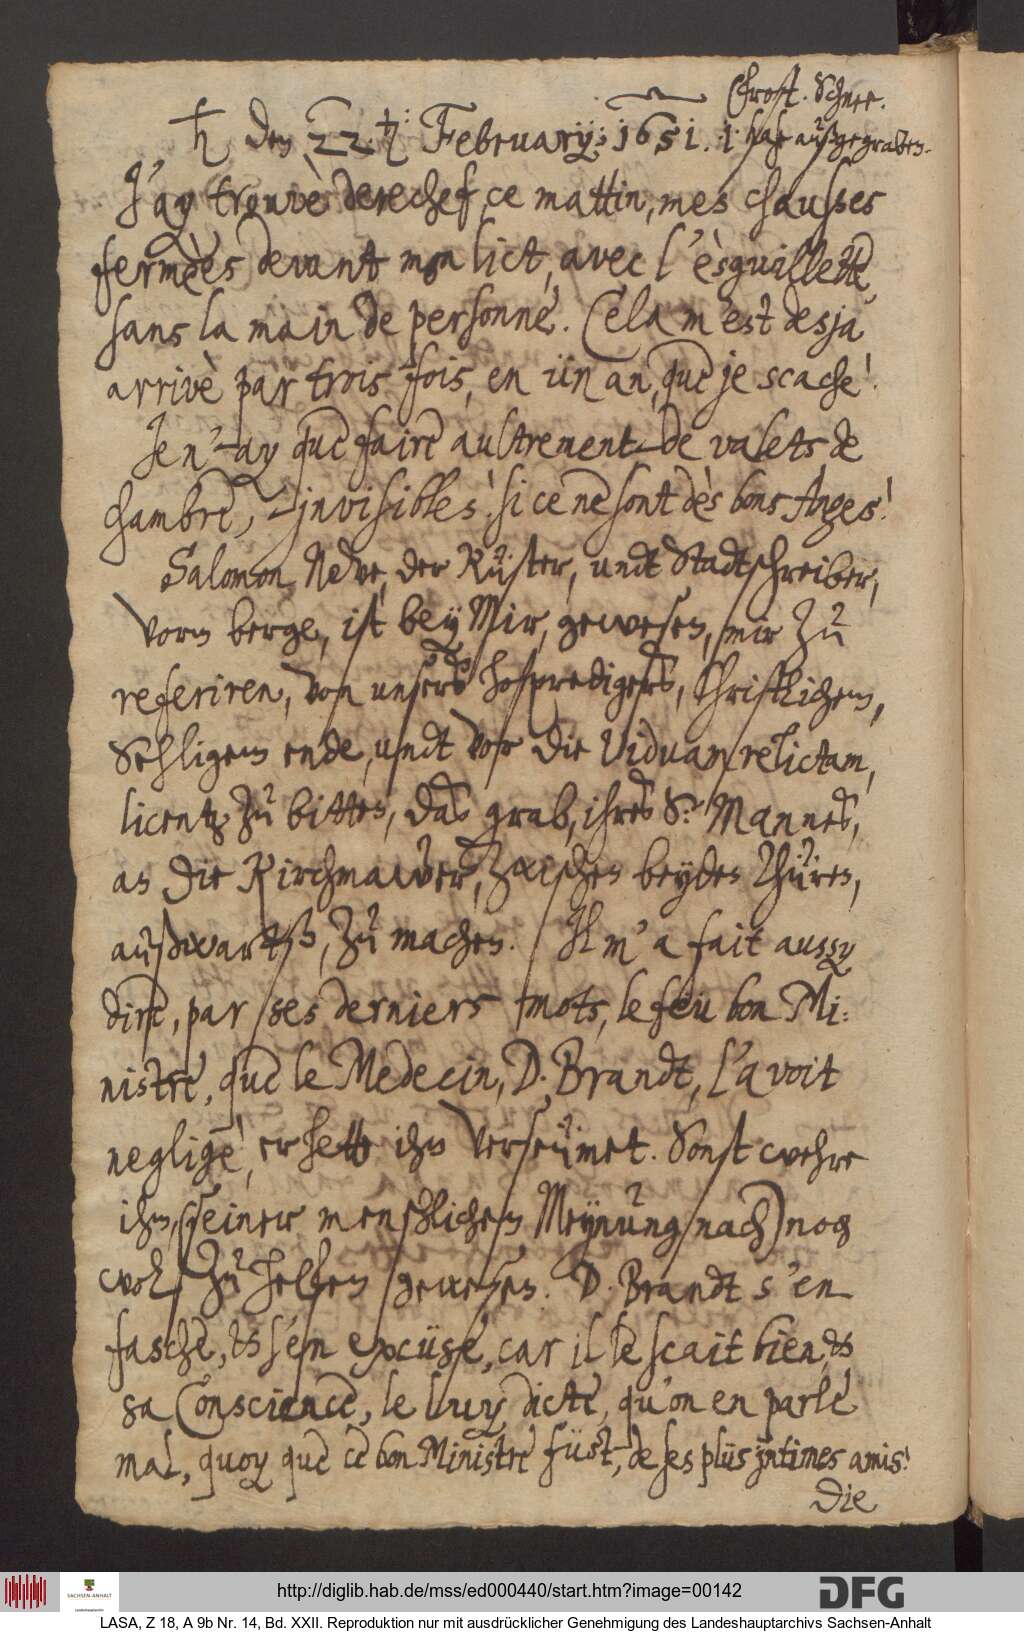 Frost. Schnee.
♄ den 22. ♄ February: 1651. 1 hase außgegraben.
J'ay trouvè derechef ce mattin, mes chausses
fermèes devant mon lict, avec l'èsguillette,
sans la main de personne. Cela m'est desja
arrivè par trois fois, en ün an, que je scache!
Je n'-ay que faire aultrement de valets de
chambre, invisibles! si ce ne sont dès bons Anges!
Salomon Neẅe, der Küster, undt Stadtschreiber,
vorm berge, ist bey Mir, gewesen, mir zu
referiren, von unsers hofpredigers, Christlichem,
Sehligem ende, undt vor die Viduam relictam,
licentz zu bitten, das grab, ihres Sr. Mannes,
an die Kirchmawer, zwischen beyden Thüren,
außwartß, zu machen. Il m'a fait aussy
dire, par ses derniers mots, le feu bon Mi:
nistre, que le Medecin, D. Brandt, l'avoit
negligè, er hette ihn verseümet. Sonst wehre
ihm, (seiner menschlichen Meynung nach) noch
wol zu helfen gewesen. D. Brandt s'en
faschè, et s'en excüse, car il le scait bien, et
sa Conscience, le luy dicte, qu'on en parle
mal, quoy que ce bon Ministre füst, de ses plüs jntimes amis!
Die
http://diglib.hab.de/mss/ed000440/start.htm?image=00142
SACHSEN-ANHALT
Landeshauptarchiv
DFG
LASA, Z 18, A 9b Nr. 14, Bd. XXII. Reproduktion nur mit ausdrücklicher Genehmigung des Landeshauptarchivs Sachsen-Anhalt